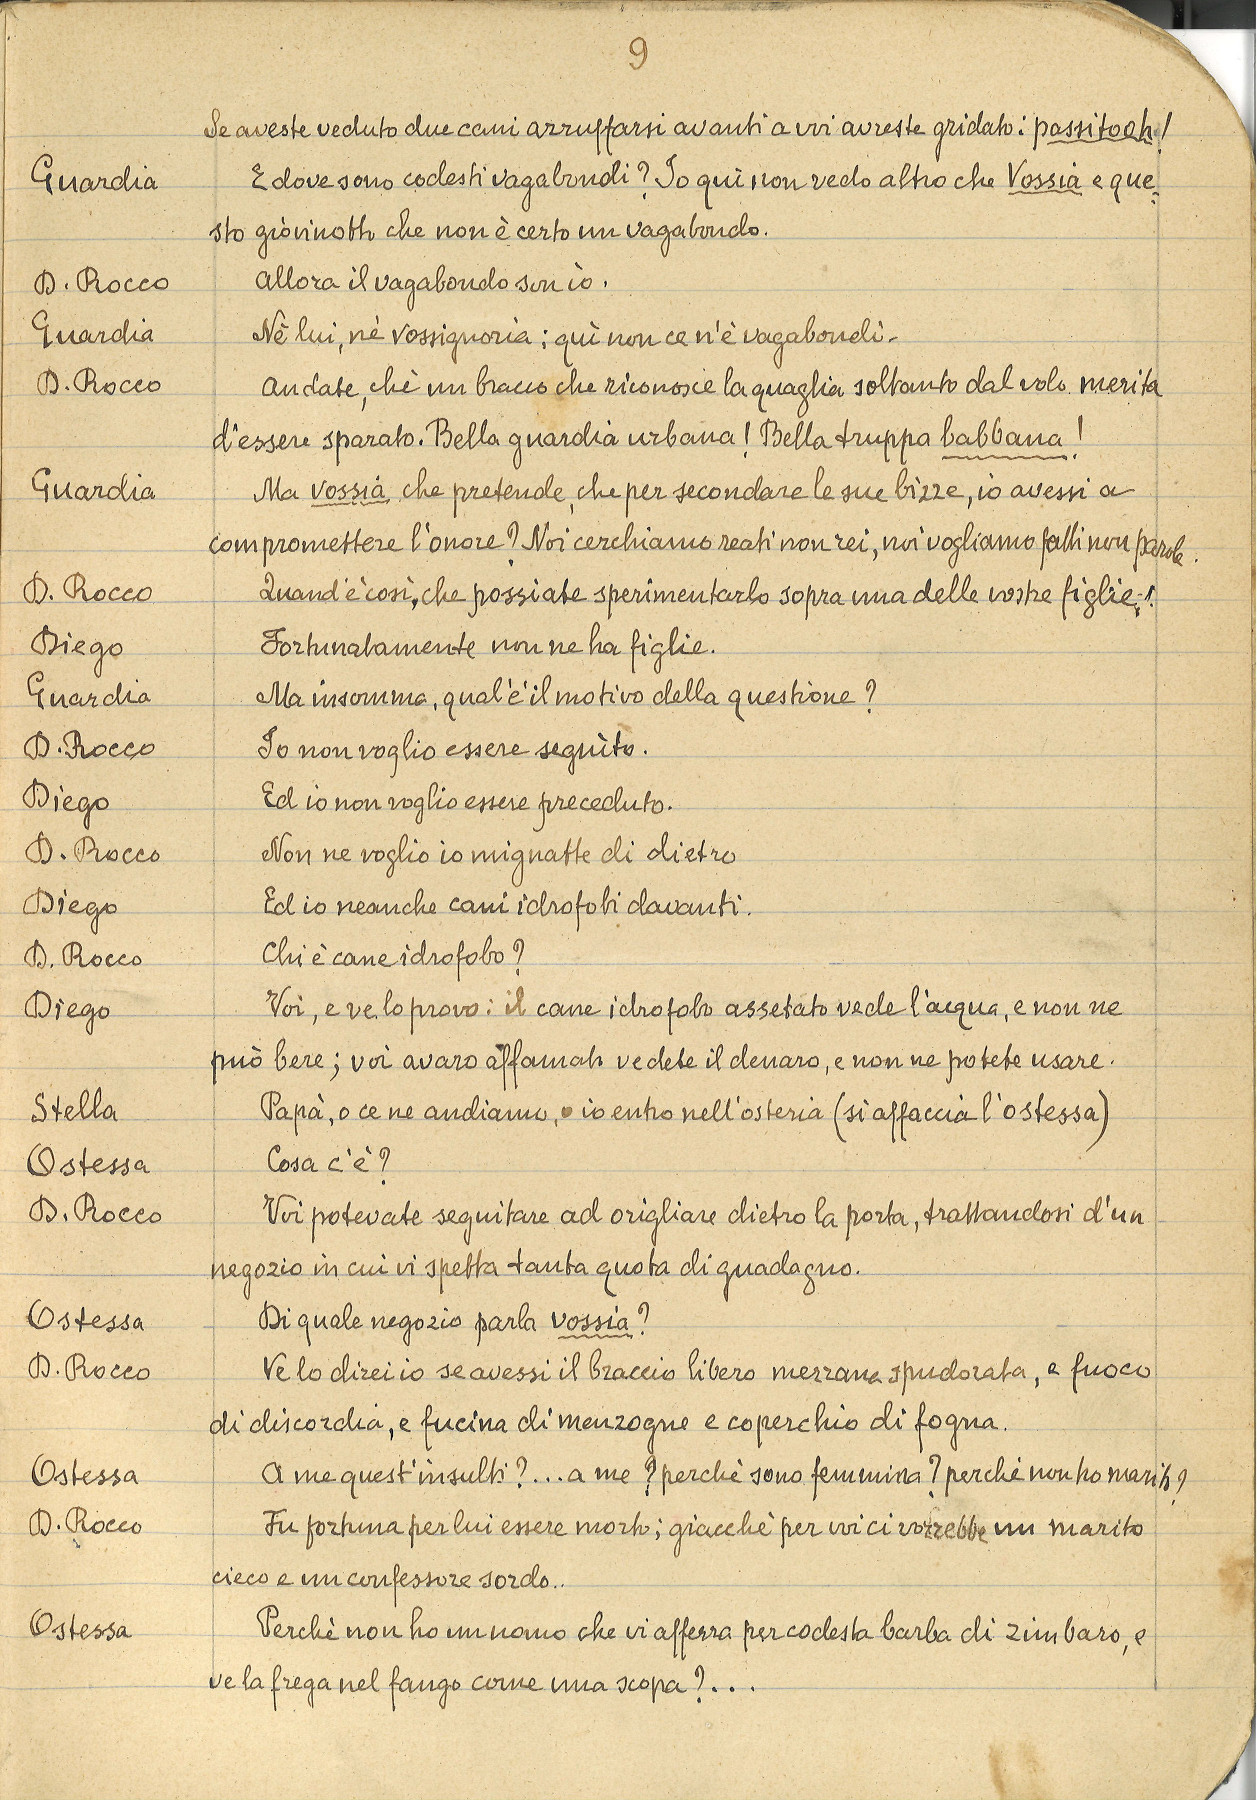 9
Se aveste veduto due cani azzuffarsi avanti a voi avreste gridato: passitoah!
Guardia E dove sono codesti vagabondi? Io quì non vedo altro che Vossià e que-
sto giovinotto che non è certo un vagabondo.
D. Rocco Allora il vagabondo son io.
Guardia Nè lui, nè vossignoria; quì non ce n'è vagabondi.
D. Rocco Andate, chè un bracco che riconosce la quaglia soltanto dal volo merita
d'essere sparato. Bella guardia urbana! Bella truppa babbana!
Guardia Ma vossià che pretende, che per secondare le sue bizze, io avessi a
compromettere l'onore? Noi cerchiamo reati non rei, noi vogliamo fatti non parole.
D. Rocco Quand'è così, che possiate sperimentarlo sopra una delle vostre figlie!
Diego Fortunatamente non ne ha figlie.
Guardia Ma insomma, qual'è il motivo della questione?
D. Rocco Io non voglio essere seguìto.
Diego Ed io non voglio essere preceduto.
D. Rocco Non ne voglio io mignatte di dietro
Diego Ed io neanche cani idrofobi davanti.
D. Rocco Chi è cane idrofobo?
Diego Voi, e ve lo provo: il cane idrofobo assetato vede l'acqua, e non ne
può bere; voi avaro affamato vedete il denaro, e non ne potete usare.
Stella Papà, o ce ne andiamo, o io entro nell'osteria (si affaccia l'ostessa)
Ostessa Cosa c'è?
D. Rocco Voi potevate seguitare ad origliare dietro la porta, trattandosi d'un
negozio in cui vi spetta tanta quota di guadagno.
Ostessa Di quale negozio parla vossia?
D. Rocco Ve lo direi io se avessi il braccio libero mezzana spudorata, e fuoco
di discordia, e fucina di menzogne e coperchio di fogna.
Ostessa A me quest'insulti?... a me? perchè sono femmina? perchè non ho marito?
D. Rocco Fu fortuna per lui essere morto; giacchè per voi ci vorrebbe un marito
cieco e un confessore sordo..
Ostessa Perchè non ho un uomo che vi afferra per codesta barba di zimbaro, e
ve la frega nel fango come una scopa?...